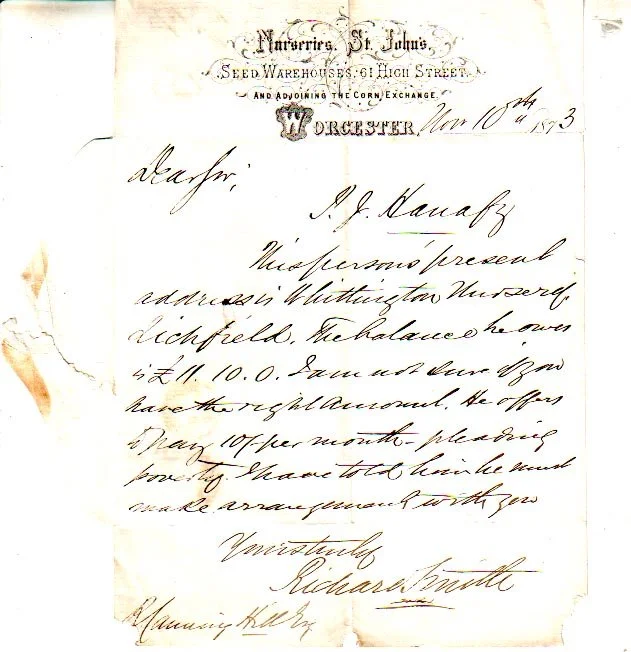 Nurseries, St. John's,
Seed Warehouses, 61 High Street,
And Adjoining the Corn Exchange.
Worcester, Nov 10th 1873
Dear Sir,
P. J. Hanafy
This person's present
address is Whittington Nursery,
Lichfield. The balance he owes
is £11. 10. 0. I am not sure if you
have the right amount. He offers
to pay 10/- per month - pleading
poverty. I have told him he must
make arrangement with you
Yours truly
Richard Smith
R Canning Hill Esq